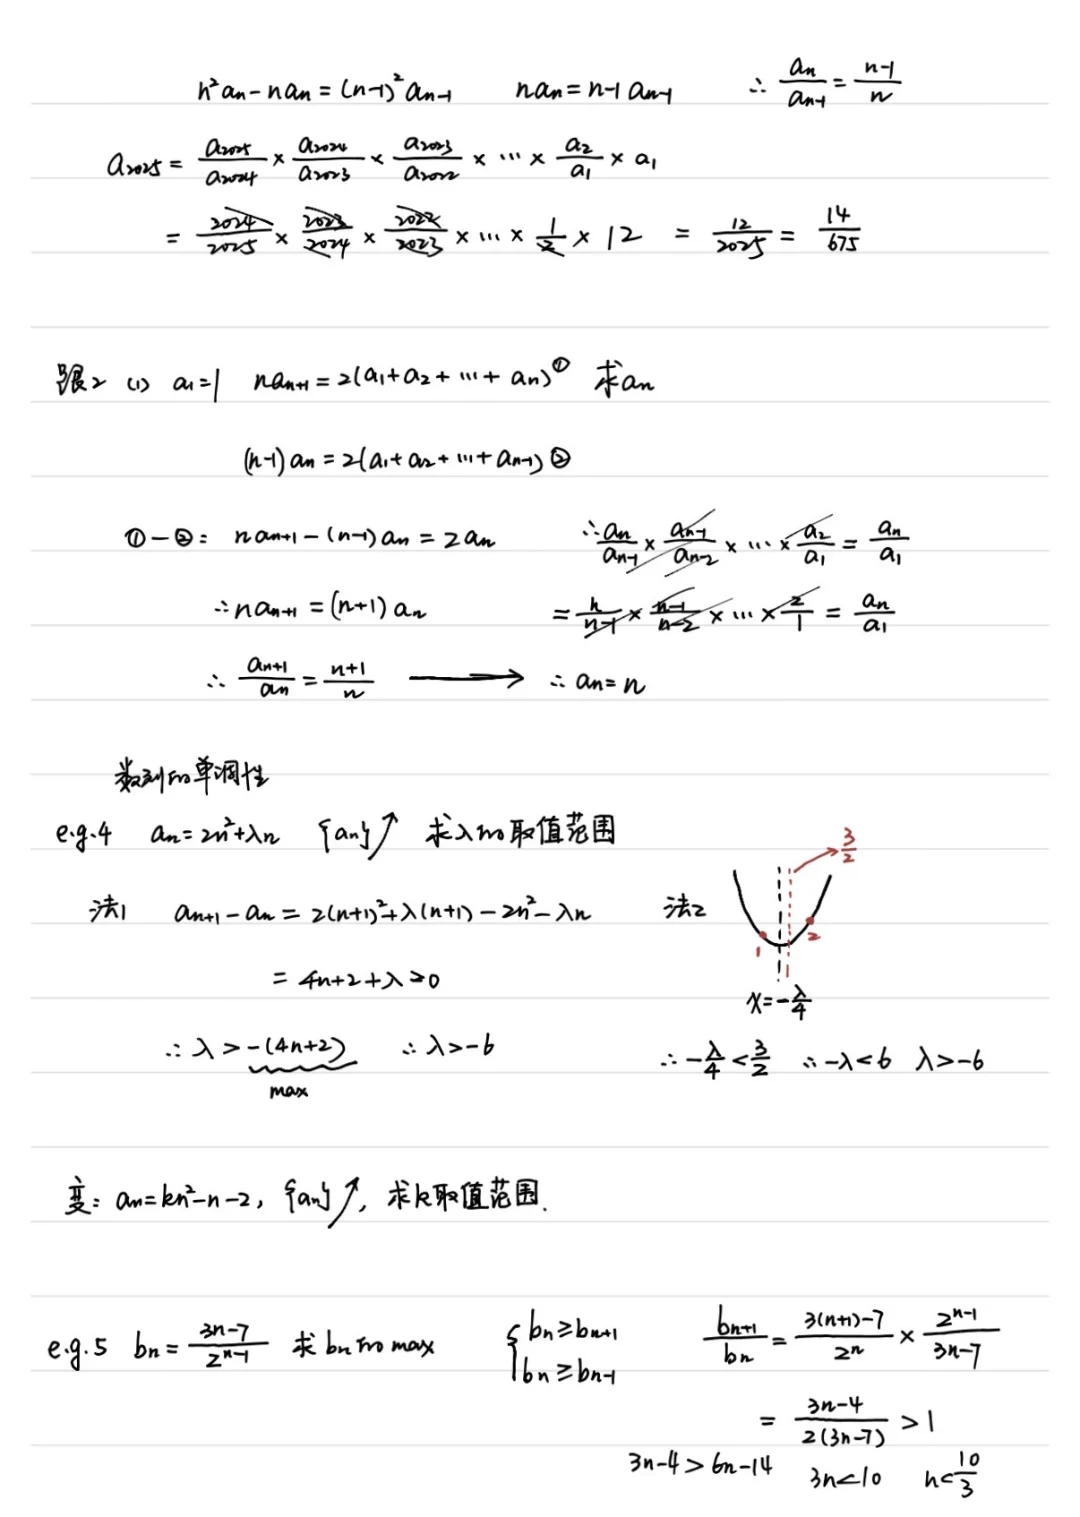 n²aₙ-naₙ=(n-1)²aₙ₋₁ naₙ=n-1 aₙ₋₁ ∴ aₙ/aₙ₋₁ = (n-1)/n
a₂₀₂₅ = a₂₀₂₅/a₂₀₂₄ × a₂₀₂₄/a₂₀₂₃ × a₂₀₂₃/a₂₀₂₂ × ··· × a₂/a₁ × a₁
= 2024/2025 × 2023/2024 × 2022/2023 × ··· × 1/2 × 12 = 12/2025 = 14/675
跟2 (1) a₁=1 naₙ₊₁=2(a₁+a₂+···+aₙ)① 求aₙ
(n-1)aₙ=2(a₁+a₂+···+aₙ₋₁)②
①-②: naₙ₊₁-(n-1)aₙ=2aₙ ∴ aₙ/aₙ₋₁ × aₙ₋₁/aₙ₋₂ × ··· × a₂/a₁ = aₙ/a₁
∴naₙ₊₁=(n+1)aₙ = n/(n-1) × (n-1)/(n-2) × ··· × 2/1 = aₙ/a₁
∴ aₙ₊₁/aₙ = (n+1)/n ⟶ ∴ aₙ=n
数列的单调性
e.g.4 aₙ=2n²+λn {aₙ}↗ 求λ的取值范围
法1 aₙ₊₁-aₙ=2(n+1)²+λ(n+1)-2n²-λn 法2 3/2
1 2
= 4n+2+λ>0 x=-λ/4
∴ λ>-(4n+2) ∴ λ>-6 ∴ -λ/4<3/2 ∴ -λ<6 λ>-6
max
变: aₙ=kn²-n-2, {aₙ}↗, 求k取值范围.
e.g.5 bₙ=(3n-7)/2ⁿ⁻¹ 求bₙ的max { bₙ≥bₙ₊₁ bₙ≥bₙ₋₁ bₙ₊₁/bₙ = (3(n+1)-7)/2ⁿ × 2ⁿ⁻¹/(3n-7)
= (3n-4)/(2(3n-7)) >1
3n-4>6n-14 3n<10 n<10/3